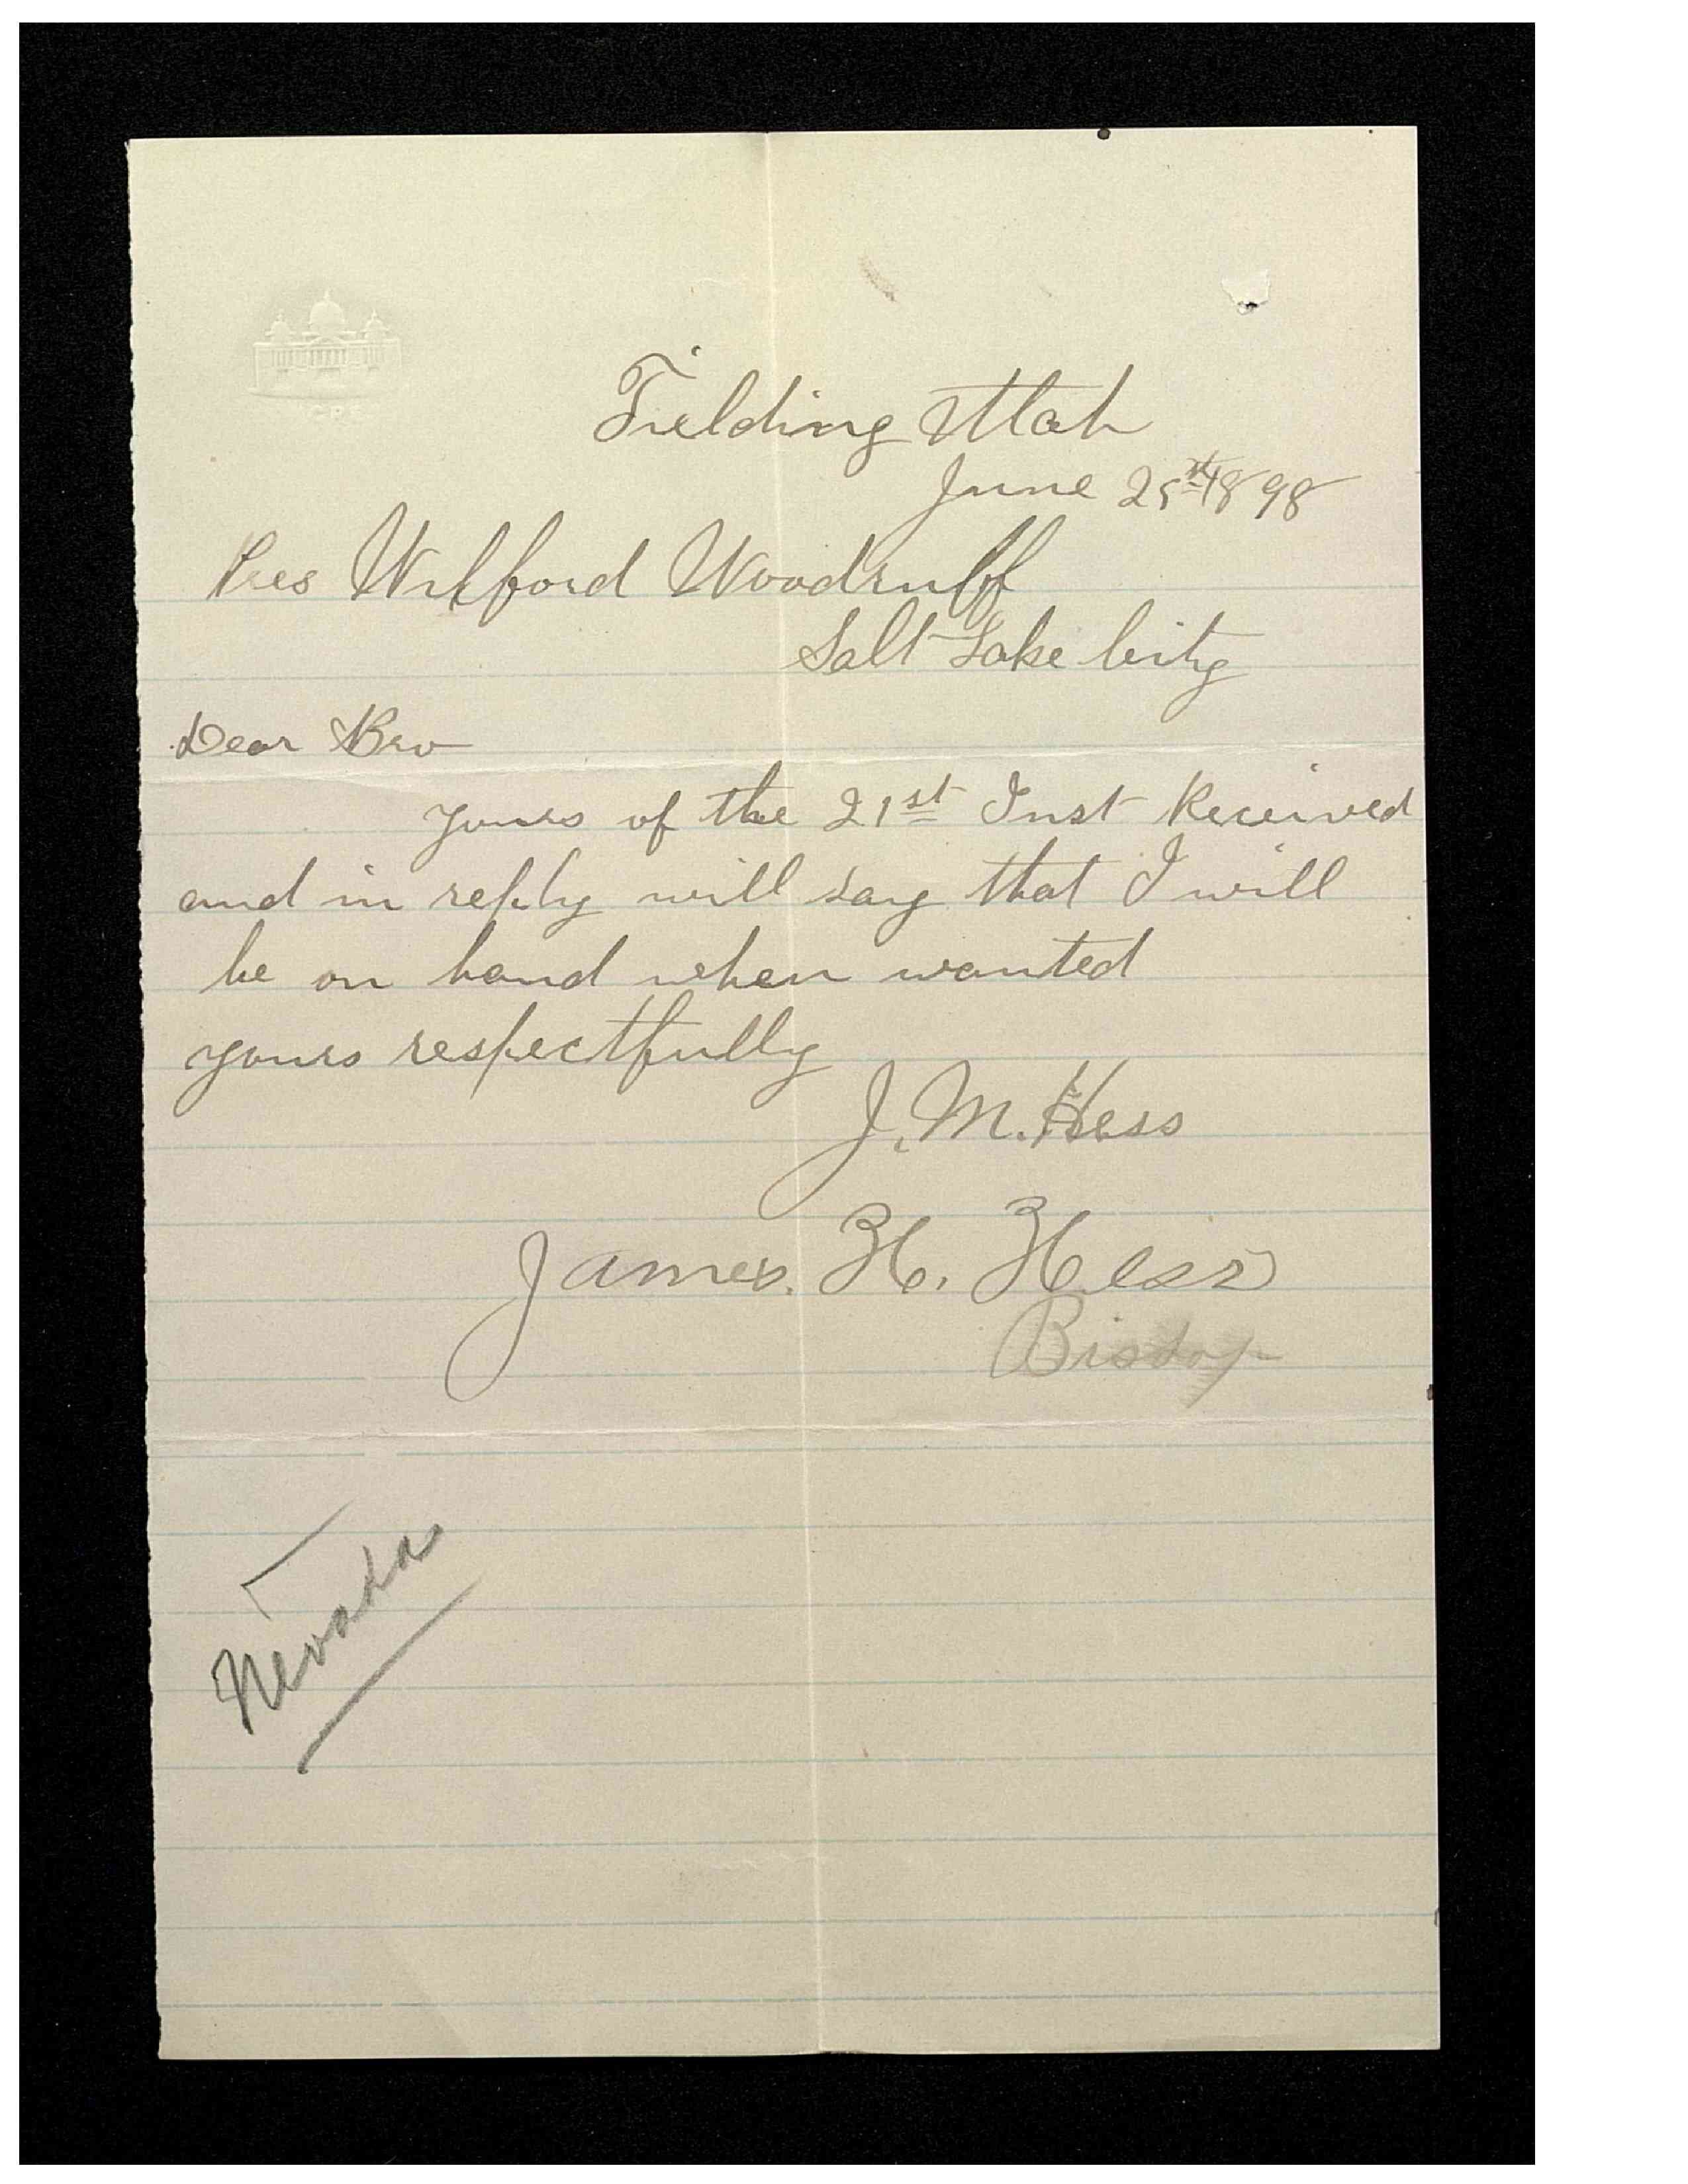 Fielding Utah
June 25th 1898
Pres Wilford Woodruff
Salt Lake City
Dear Bro
yours of the 21st Inst Received
and in reply will say that I will
be on hand when wanted
yours respectfully
J. M. Hess
James. H. Hess
Bishop
Nevada